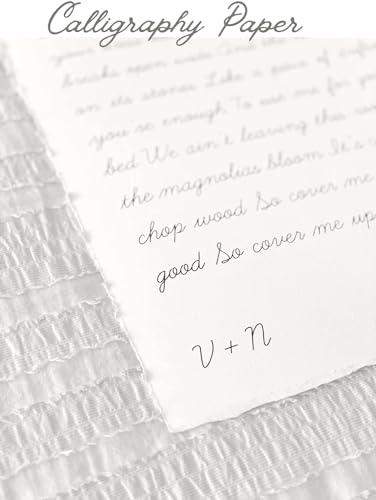 Calligraphy Paper
breaks open
on its stones Like a piece of
you're enough To use me for
bed We ain't leaving this
the magnolias bloom It's
chop wood So cover me
good So cover me up
V + N